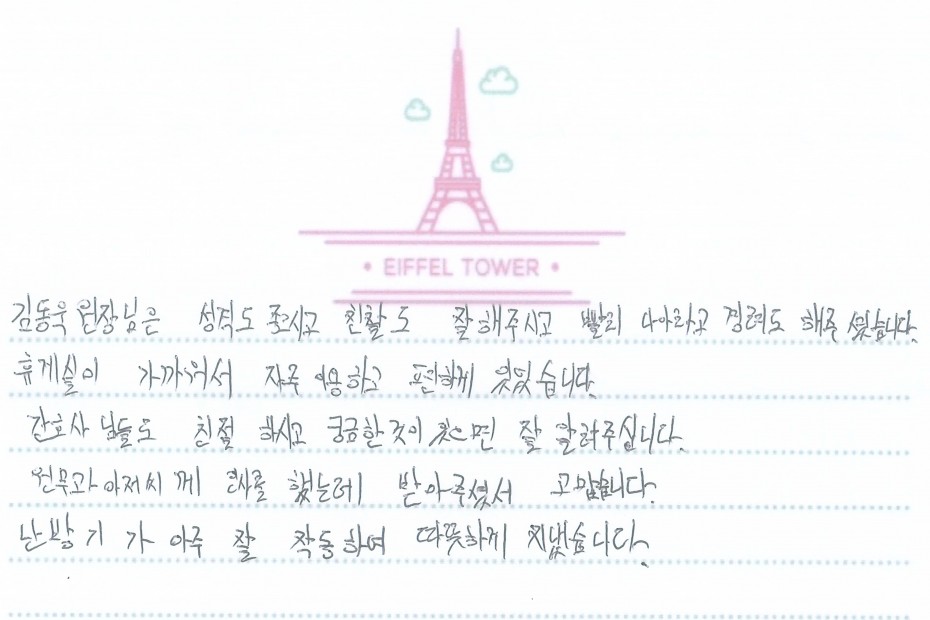 • EIFFEL TOWER •
김동욱 원장님은 성격도 좋시고 친찰도 잘 해주시고 빨리 나아라고 격려도 해주셨습니다.
휴게실이 가까워서 자주 이용하고 편하게 있었습니다.
간호사 님들도 친절 하시고 궁금한것이 있으면 잘 알려주십니다.
원무과 아저씨 께 인사를 했는데 받아주셨서 고맙습니다.
난방기가 아주 잘 작동하여 따뜻하게 지냈습니다.